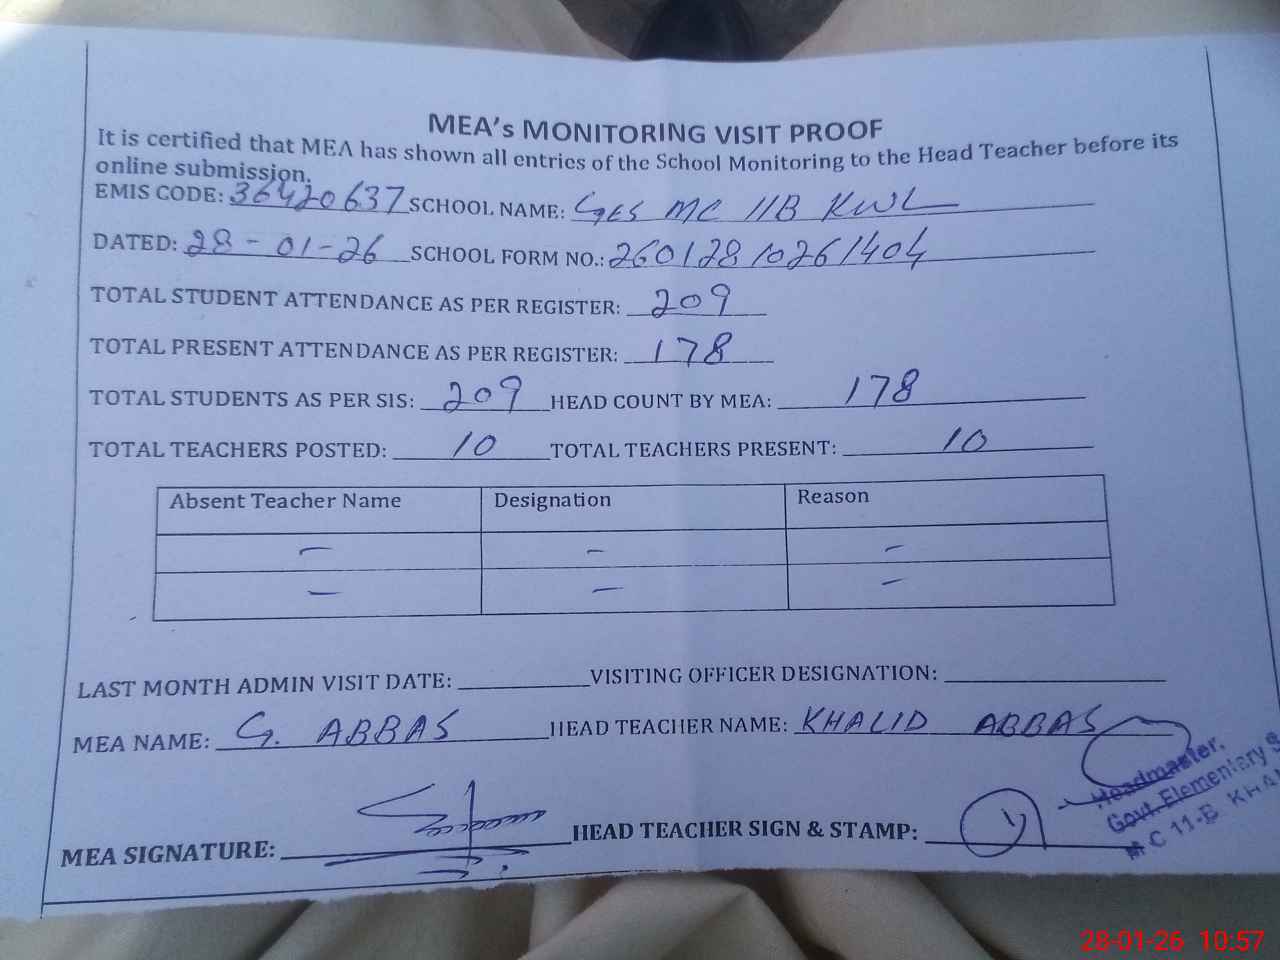 MEA's MONITORING VISIT PROOF
It is certified that MEA has shown all entries of the School Monitoring to the Head Teacher before its
online submission.
EMIS CODE: 36420637 SCHOOL NAME: GES MC 11B KWL
DATED: 28-01-26 SCHOOL FORM NO.: 26012810261404
TOTAL STUDENT ATTENDANCE AS PER REGISTER: 209
TOTAL PRESENT ATTENDANCE AS PER REGISTER: 178
TOTAL STUDENTS AS PER SIS: 209 HEAD COUNT BY MEA: 178
TOTAL TEACHERS POSTED: 10 TOTAL TEACHERS PRESENT: 10
Absent Teacher Name Designation Reason
– – –
– – –
LAST MONTH ADMIN VISIT DATE: VISITING OFFICER DESIGNATION:
MEA NAME: G. ABBAS HEAD TEACHER NAME: KHALID ABBAS
MEA SIGNATURE: HEAD TEACHER SIGN & STAMP:
Headmaster.
Govt. Elementary S
M C 11-B KHA
28-01-26 10:57